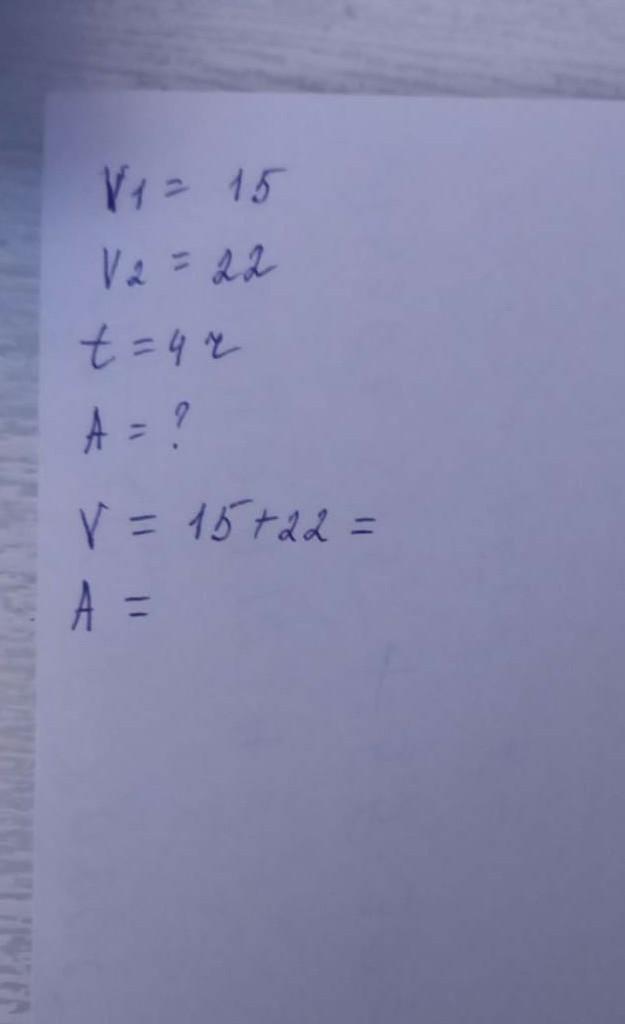 V1 = 15
V2 = 22
t = 4 ч
A = ?
V = 15+22 =
A =